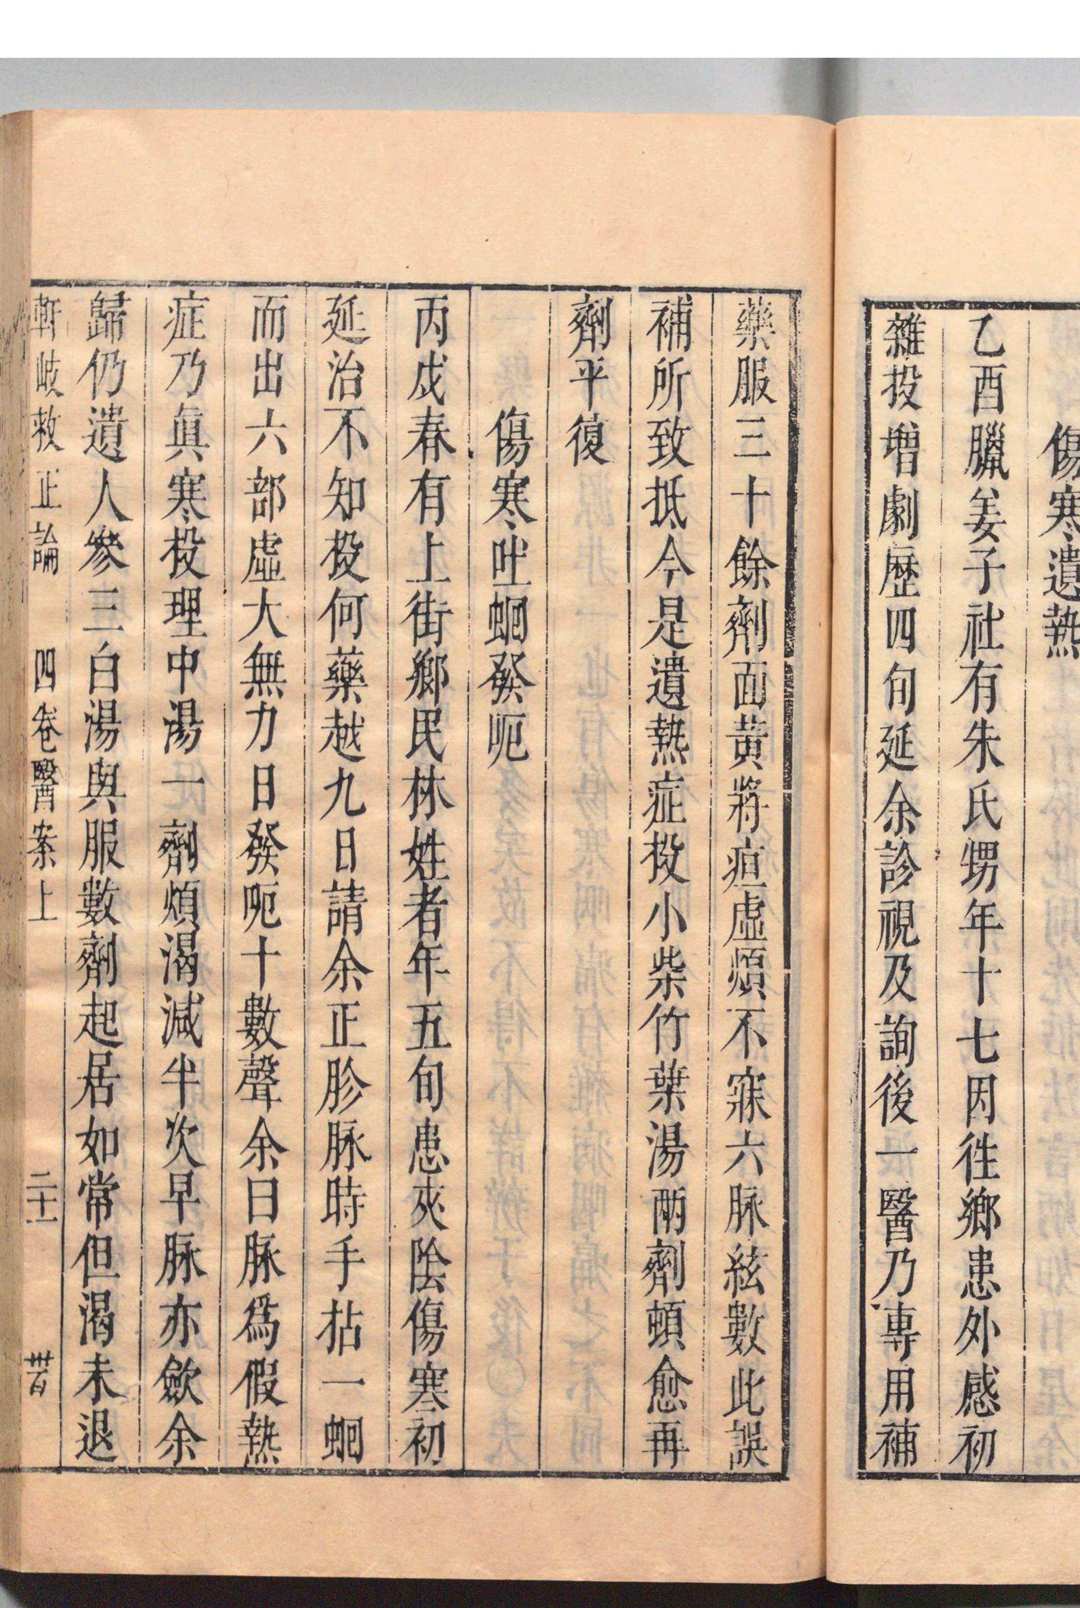 傷寒遺熱
乙酉臘姜子社有朱氏甥年十七因徃鄉患外感初
雜投增劇歷四旬延余診視及詢後一醫乃專用補
藥服三十餘劑面黃將疸虛煩不寐六脉絃數此誤
補所致抵今是遺熱症投小柴竹葉湯兩劑頓愈再
劑平復
傷寒吐蛔發呃
丙戍春有上街鄉民林姓者年五旬患夾陰傷寒初
延治不知投何藥越九日請余正胗脉時手拈一蛔
而出六部虛大無力日發呃十數聲余曰脉爲假熱
症乃眞寒投理中湯一劑煩渴減半次早脉亦歛余
歸仍遺人參三白湯與服數劑起居如常但渴未退
軒岐救正論 四卷醫案上 二十一